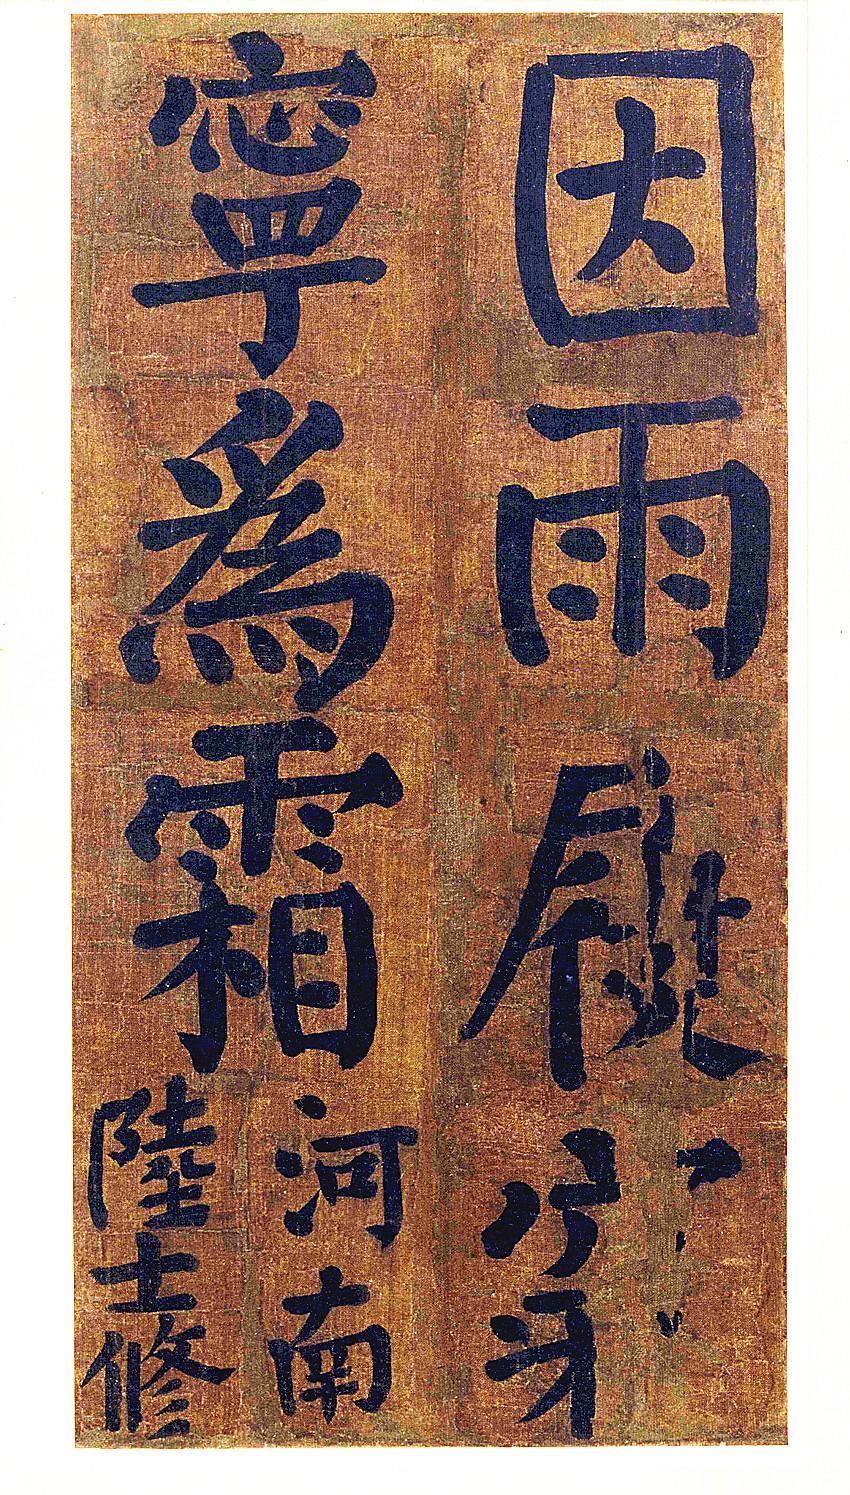 因雨履穿
寧爲霜
河南
陸士修